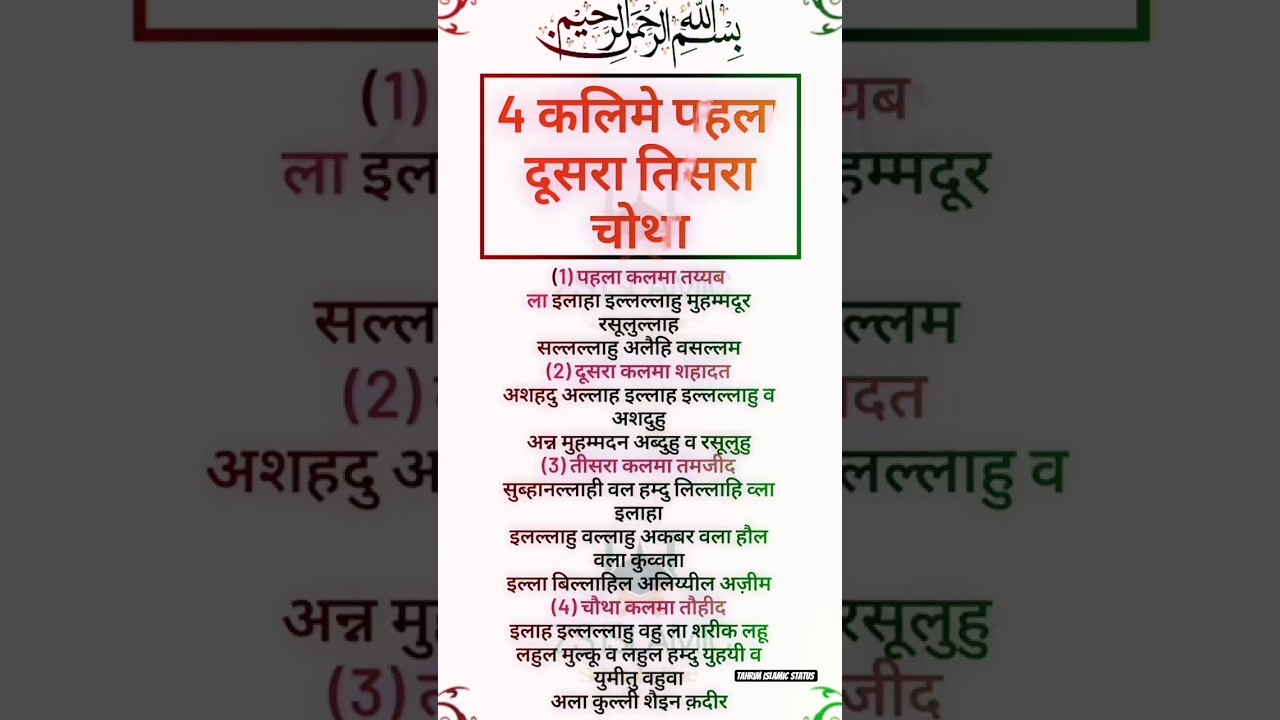 بِسْمِ اللّٰهِ الرَّحْمٰنِ الرَّحِيْمِ
4 कलिमे पहला
दूसरा तिसरा
चोथा
(1) पहला कलमा तय्यब
ला इलाहा इल्लल्लाहु मुहम्मदूर
रसूलुल्लाह
सल्लल्लाहु अलैहि वसल्लम
(2) दूसरा कलमा शहादत
अशहदु अल्लाह इल्लाह इल्लल्लाहु व
अशदुहु
अन्न मुहम्मदन अब्दुहु व रसूलुहु
(3) तीसरा कलमा तमजीद
सुब्हानल्लाही वल हम्दु लिल्लाहि व्ला
इलाहा
इलल्लाहु वल्लाहु अकबर वला हौल
वला कुव्वता
इल्ला बिल्लाहिल अलिय्यील अज़ीम
(4) चौथा कलमा तौहीद
इलाह इल्लल्लाहु वहु ला शरीक लहू
लहुल मुल्कू व लहुल हम्दु युहयी व
युमीतु वहुवा
अला कुल्ली शैइन क़दीर
TAHRIM ISLAMIC STATUS